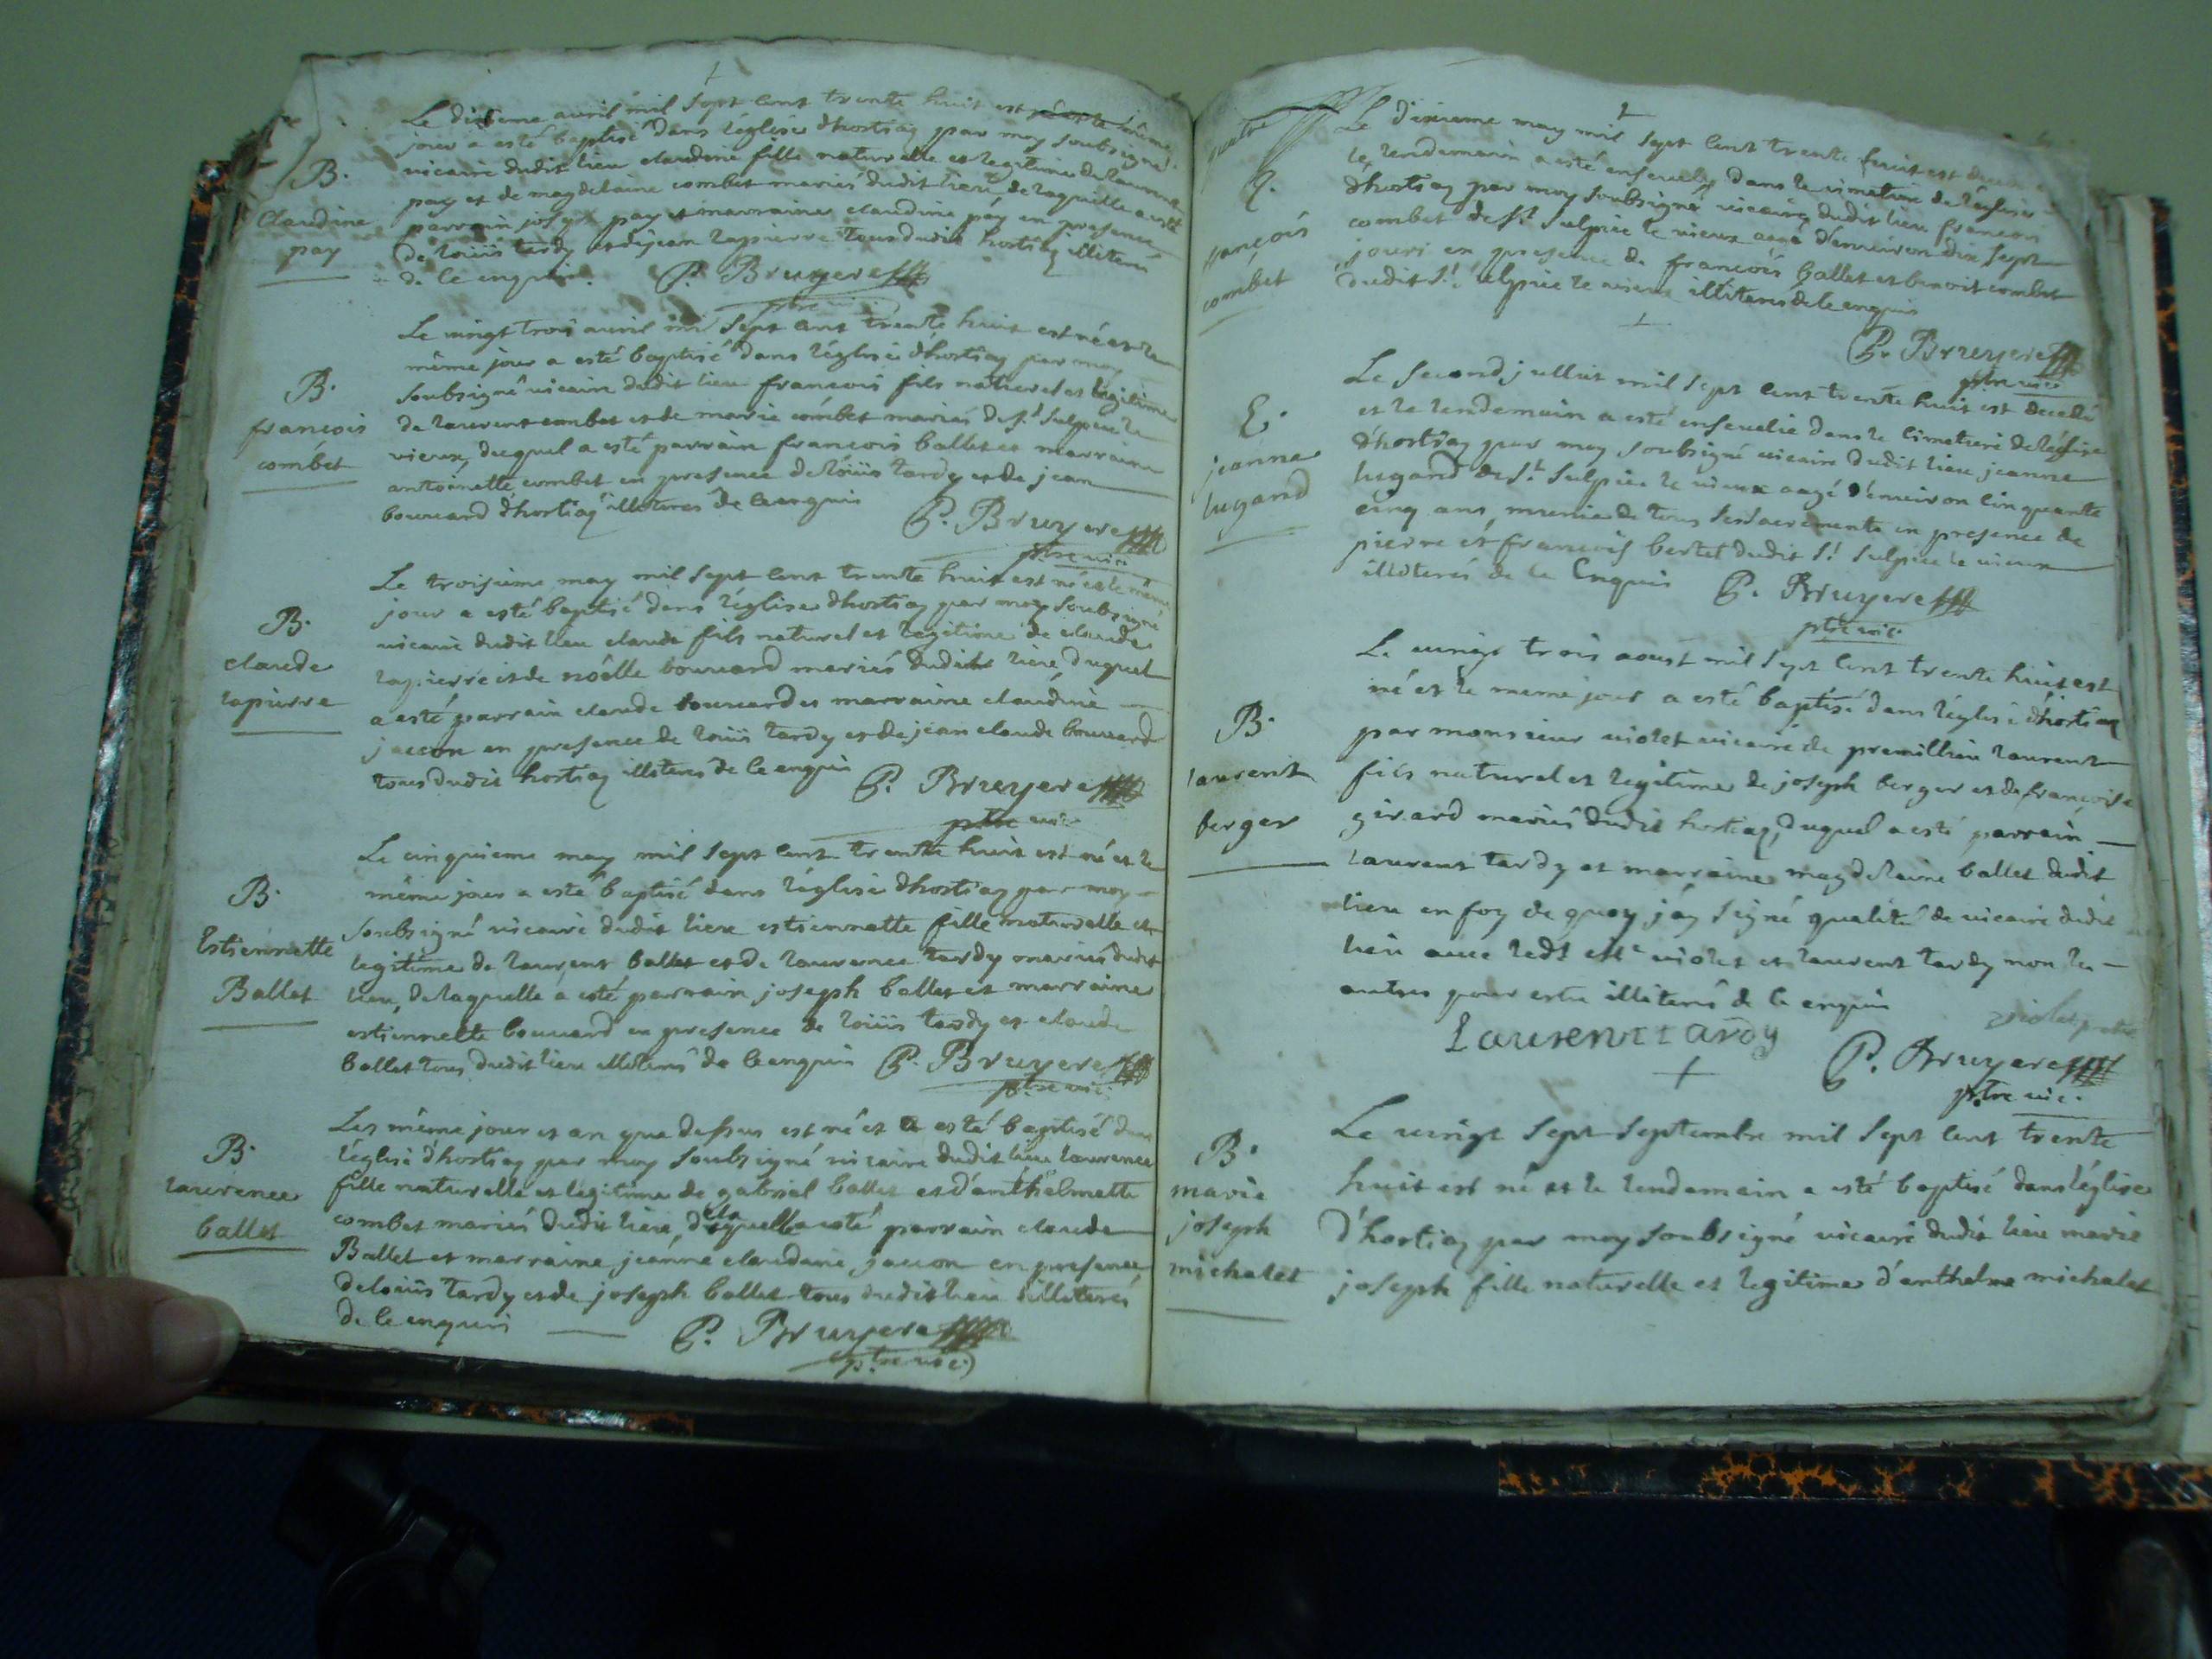 Le dixieme avril mil sept cent trente huit est né et le même
jour a esté baptisé dans l'église dhostiaz par moy soubsigné
B. vicaire dudit lieu claudine fille naturelle et legitime de laurent
Claudine pay et de magdelaine combet mariés dudit lieu de laquelle a esté
pay parrain joseph pay et marraine claudine pay en presence
de loüis tardy et de jean lapierre tous dudit hostiaz illiterés
de ce enquis. P. Bruyere
ptre vic.
Le vingt trois avril mil sept cent trente huit est né et le
même jour a esté baptisé dans l'église d'hostiaz par moy
B. soubsigné vicaire dudit lieu francois fils naturel et legitime
francois de laurent combet et de marie combet mariés de st. sulpice le
combet vieux, duquel a esté parrain francois ballet et marraine
antoinette combet en presence de loüis tardy et de jean
bouvard d'hostiaz illiterés de ce enquis P. Bruyere
ptre vic.
Le troisieme may mil sept cent trente huit est né et le même
jour a esté baptisé dans l'église dhostiaz par moy soubsigné
B. vicaire dudit lieu claude fils naturel et legitime de claude
claude lapierre et de noëlle bouvard mariés dudit lieu, duquel
lapierre a esté parrain claude bouvard et marraine claudine
jaccon en presence de loüis tardy et de jean claude bouvard
tous dudit hostiaz illiterés de ce enquis P. Bruyere
ptre vic.
Le cinquieme may mil sept cent trente huit est né et le
B. même jour a esté baptisé dans l'église dhostiaz par moy
Estiennette soubsigné vicaire dudit lieu estiennette fille naturelle et
legitime de laurent ballet et de laurence tardy mariés dudit
Ballet lieu, de laquelle a esté parrain joseph ballet et marraine
estiennette bouvard en presence de loüis tardy et claude
ballet tous dudit lieu illiterés de ce enquis P. Bruyere
ptre vic.
Les même jour et an que dessus est né et a esté baptisé dans
B. l'église d'hostiaz par moy soubsigné vicaire dudit lieu laurence
laurence fille naturelle et legitime de gabriel ballet et d'anthelmette
ballet combet mariés dudit lieu, de laquelle a esté parrain claude
Ballet et marraine jeanne claudine jaccon en presence
de loüis tardy et de joseph ballet tous dudit lieu illiterés
de ce enquis P. Bruyere
ptre vic.
Le dixieme may mil sept cent trente huit est
E. le lendemain a esté ensevely dans le cimetiere de l'église
françois dhostiaz par moy soubsigné vicaire dudit lieu francois
combet combet de st. sulpice le vieux aagé d'environ dix sept
jours en presence de francois ballet et benoit combet
dudit st. sulpice le vieux illiterés de ce enquis
P. Bruyere
ptre vic.
Le second julliet mil sept cent trente huit est decedé
E. et le lendemain a esté ensevelie dans le cimetiere de l'église
jeanne d'hostiaz par moy soubsigné vicaire dudit lieu jeanne
lugand lugand de st. sulpice le vieux aagé d'environ cinquante
cinq ans, munie de tous ses sacrements en presence de
pierre et francois bertet dudit st. sulpice le vieux
illiterés de ce enquis P. Bruyere
ptre vic.
Le vingt trois aoust mil sept cent trente huit est
né et le meme jour a esté baptisé dans l'église d'hostiaz
B. par monsieur violet vicaire de premillieu laurent
laurent fils naturel et legitime de joseph berger et de françoise
berger girard mariés dudit hostiaz, duquel a esté parrain
laurent tardy et marraine magdelaine ballet dudit
lieu en foy de quoy j'ay signé qualité de vicaire dudit
lieu avec ledt mr violet et laurent tardy non les
autres pour estre illiterés de ce enquis
Laurent tardy violet pretre
P. Bruyere
ptre vic.
Le vingt sept septembre mil sept cent trente
B. huit est né et le lendemain a esté baptisé dans l'église
marie d'hostiaz par moy soubsigné vicaire dudit lieu marie
joseph joseph fille naturelle et legitime d'anthelme michalet
michalet